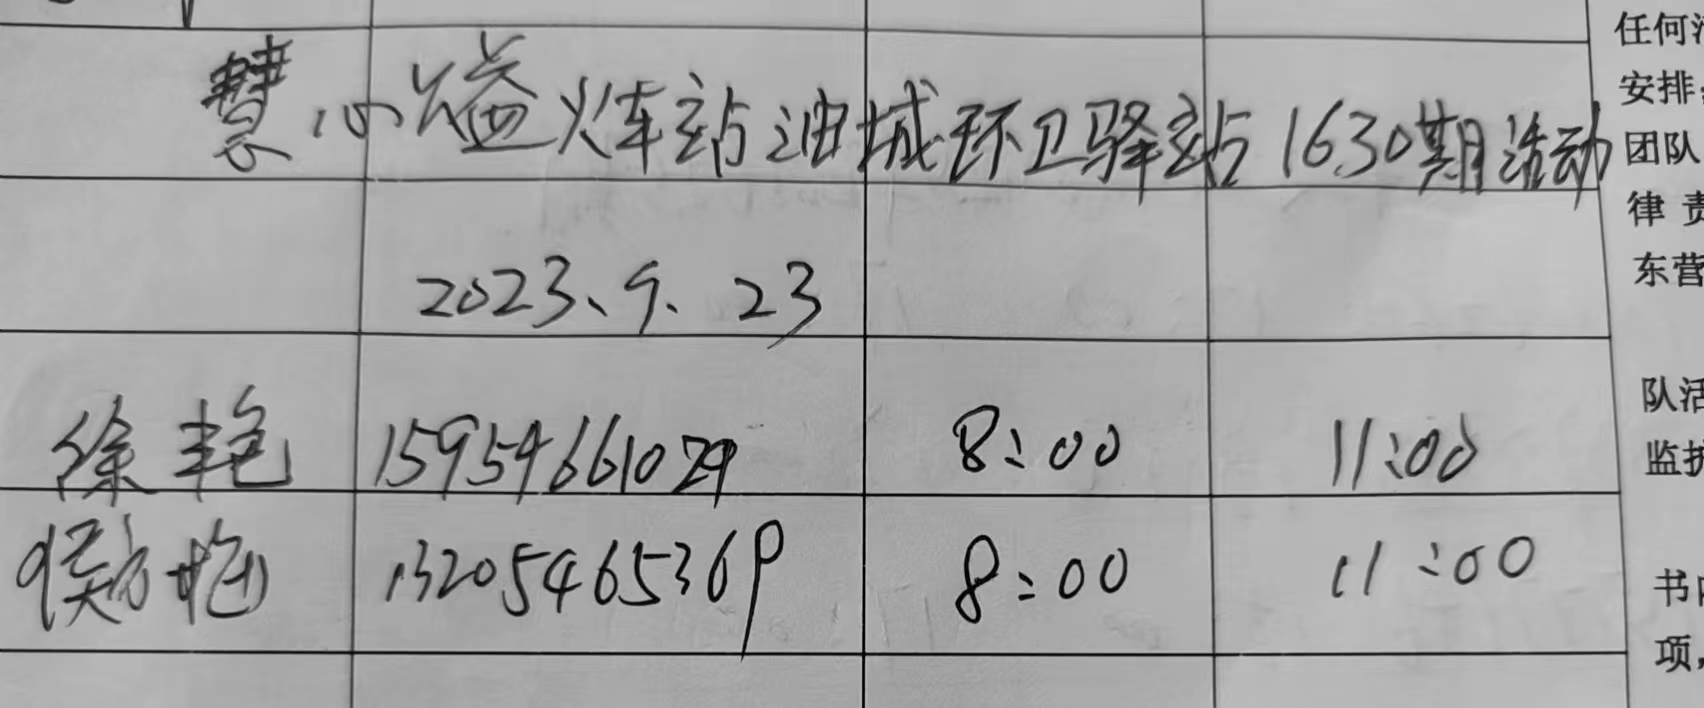 慧心公益火车站油城环卫驿站1630期活动
2023、9、23
徐艳 15954661029 8:00 11:00
13205465369 8:00 11:00
任何
安排
团队
律 责
东营
队活
监护
书
项,